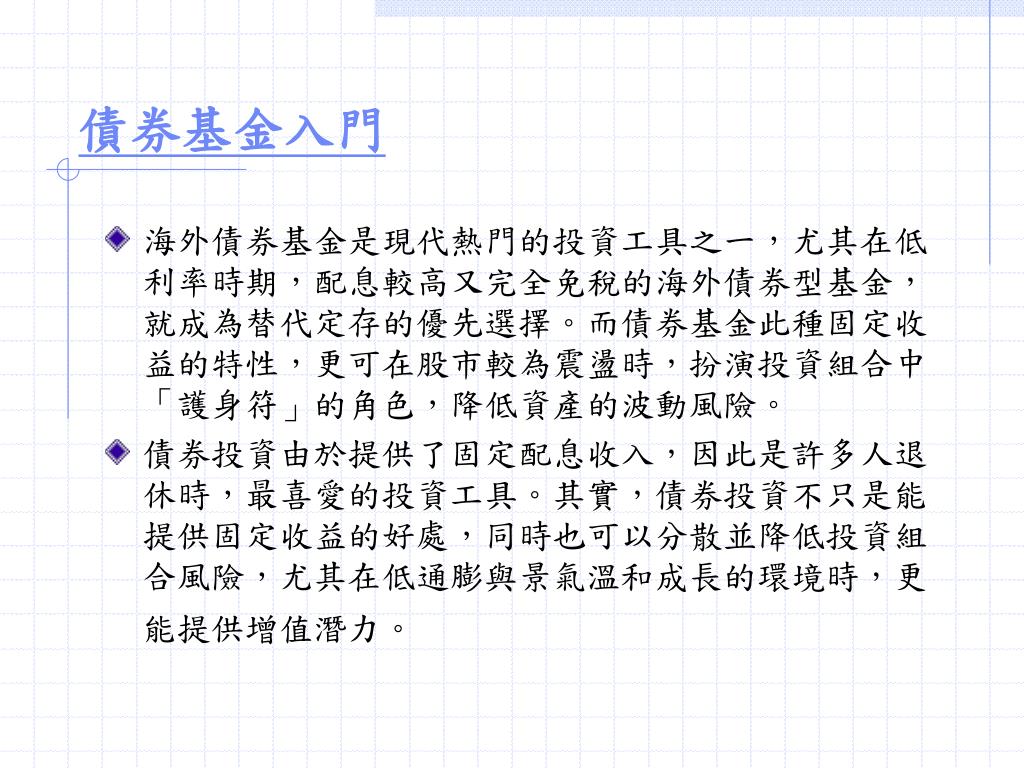 債券基金入門
海外債券基金是現代熱門的投資工具之一，尤其在低
利率時期，配息較高又完全免稅的海外債券型基金，
就成為替代定存的優先選擇。而債券基金此種固定收
益的特性，更可在股市較為震盪時，扮演投資組合中
「護身符」的角色，降低資產的波動風險。
債券投資由於提供了固定配息收入，因此是許多人退
休時，最喜愛的投資工具。其實，債券投資不只是能
提供固定收益的好處，同時也可以分散並降低投資組
合風險，尤其在低通膨與景氣溫和成長的環境時，更
能提供增值潛力。